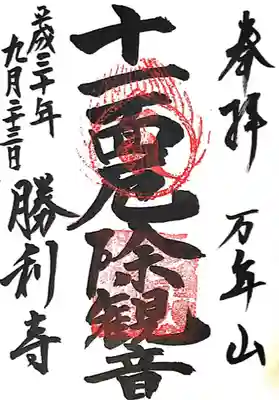 奉拝
万年山
十一面厄除観音
平成三十年
九月二十三日
勝利寺